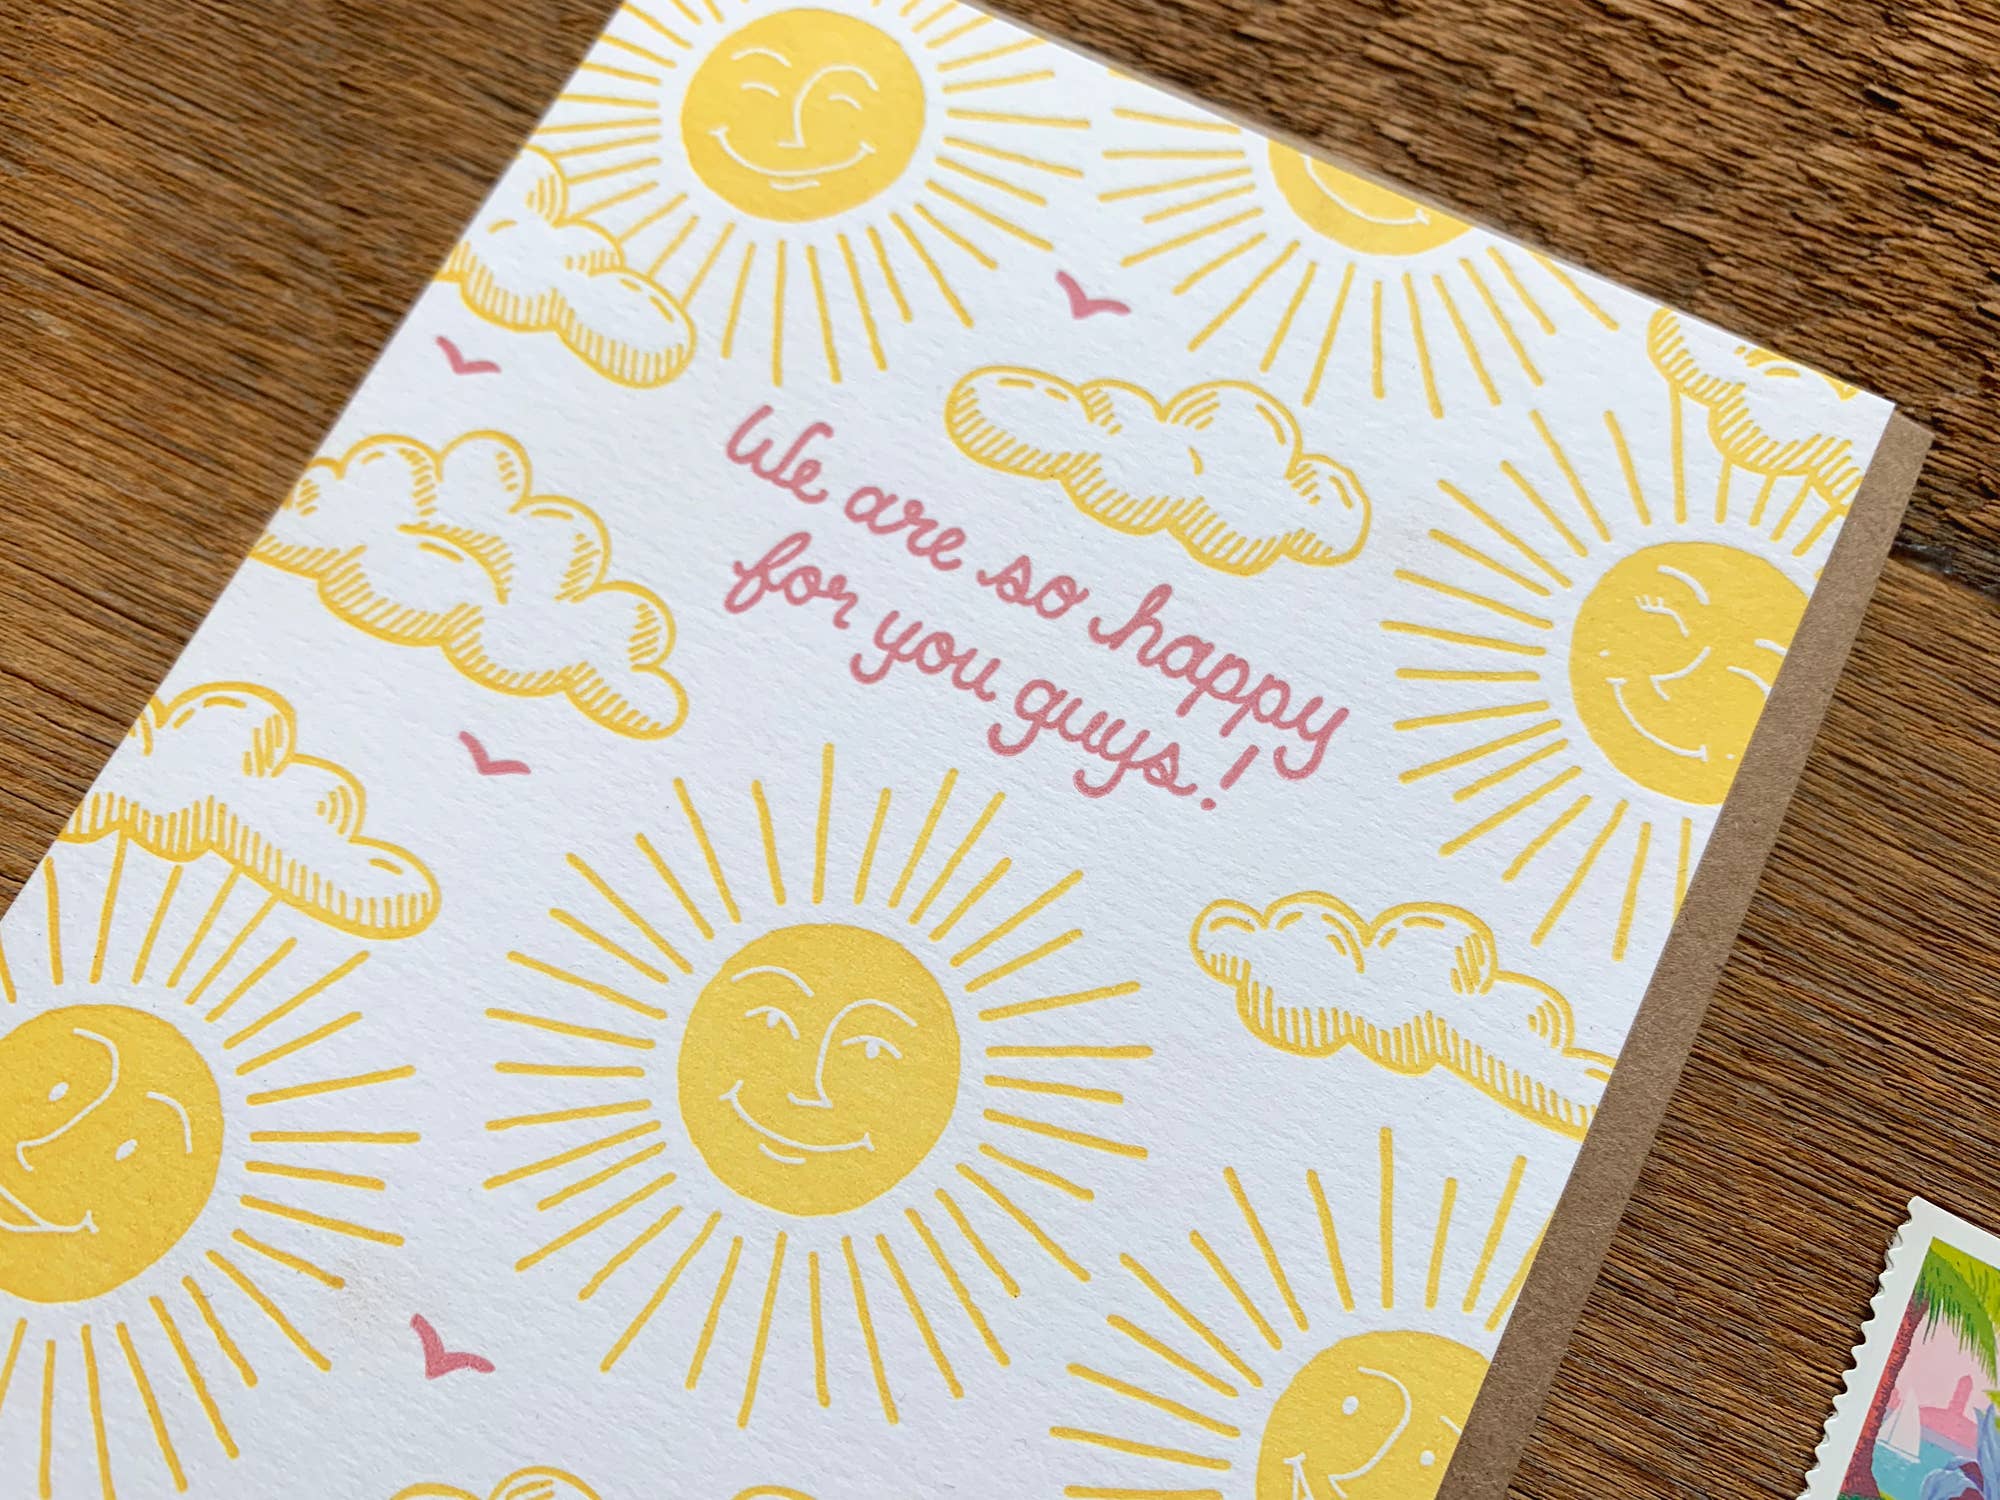 We are so happy
for you guys!